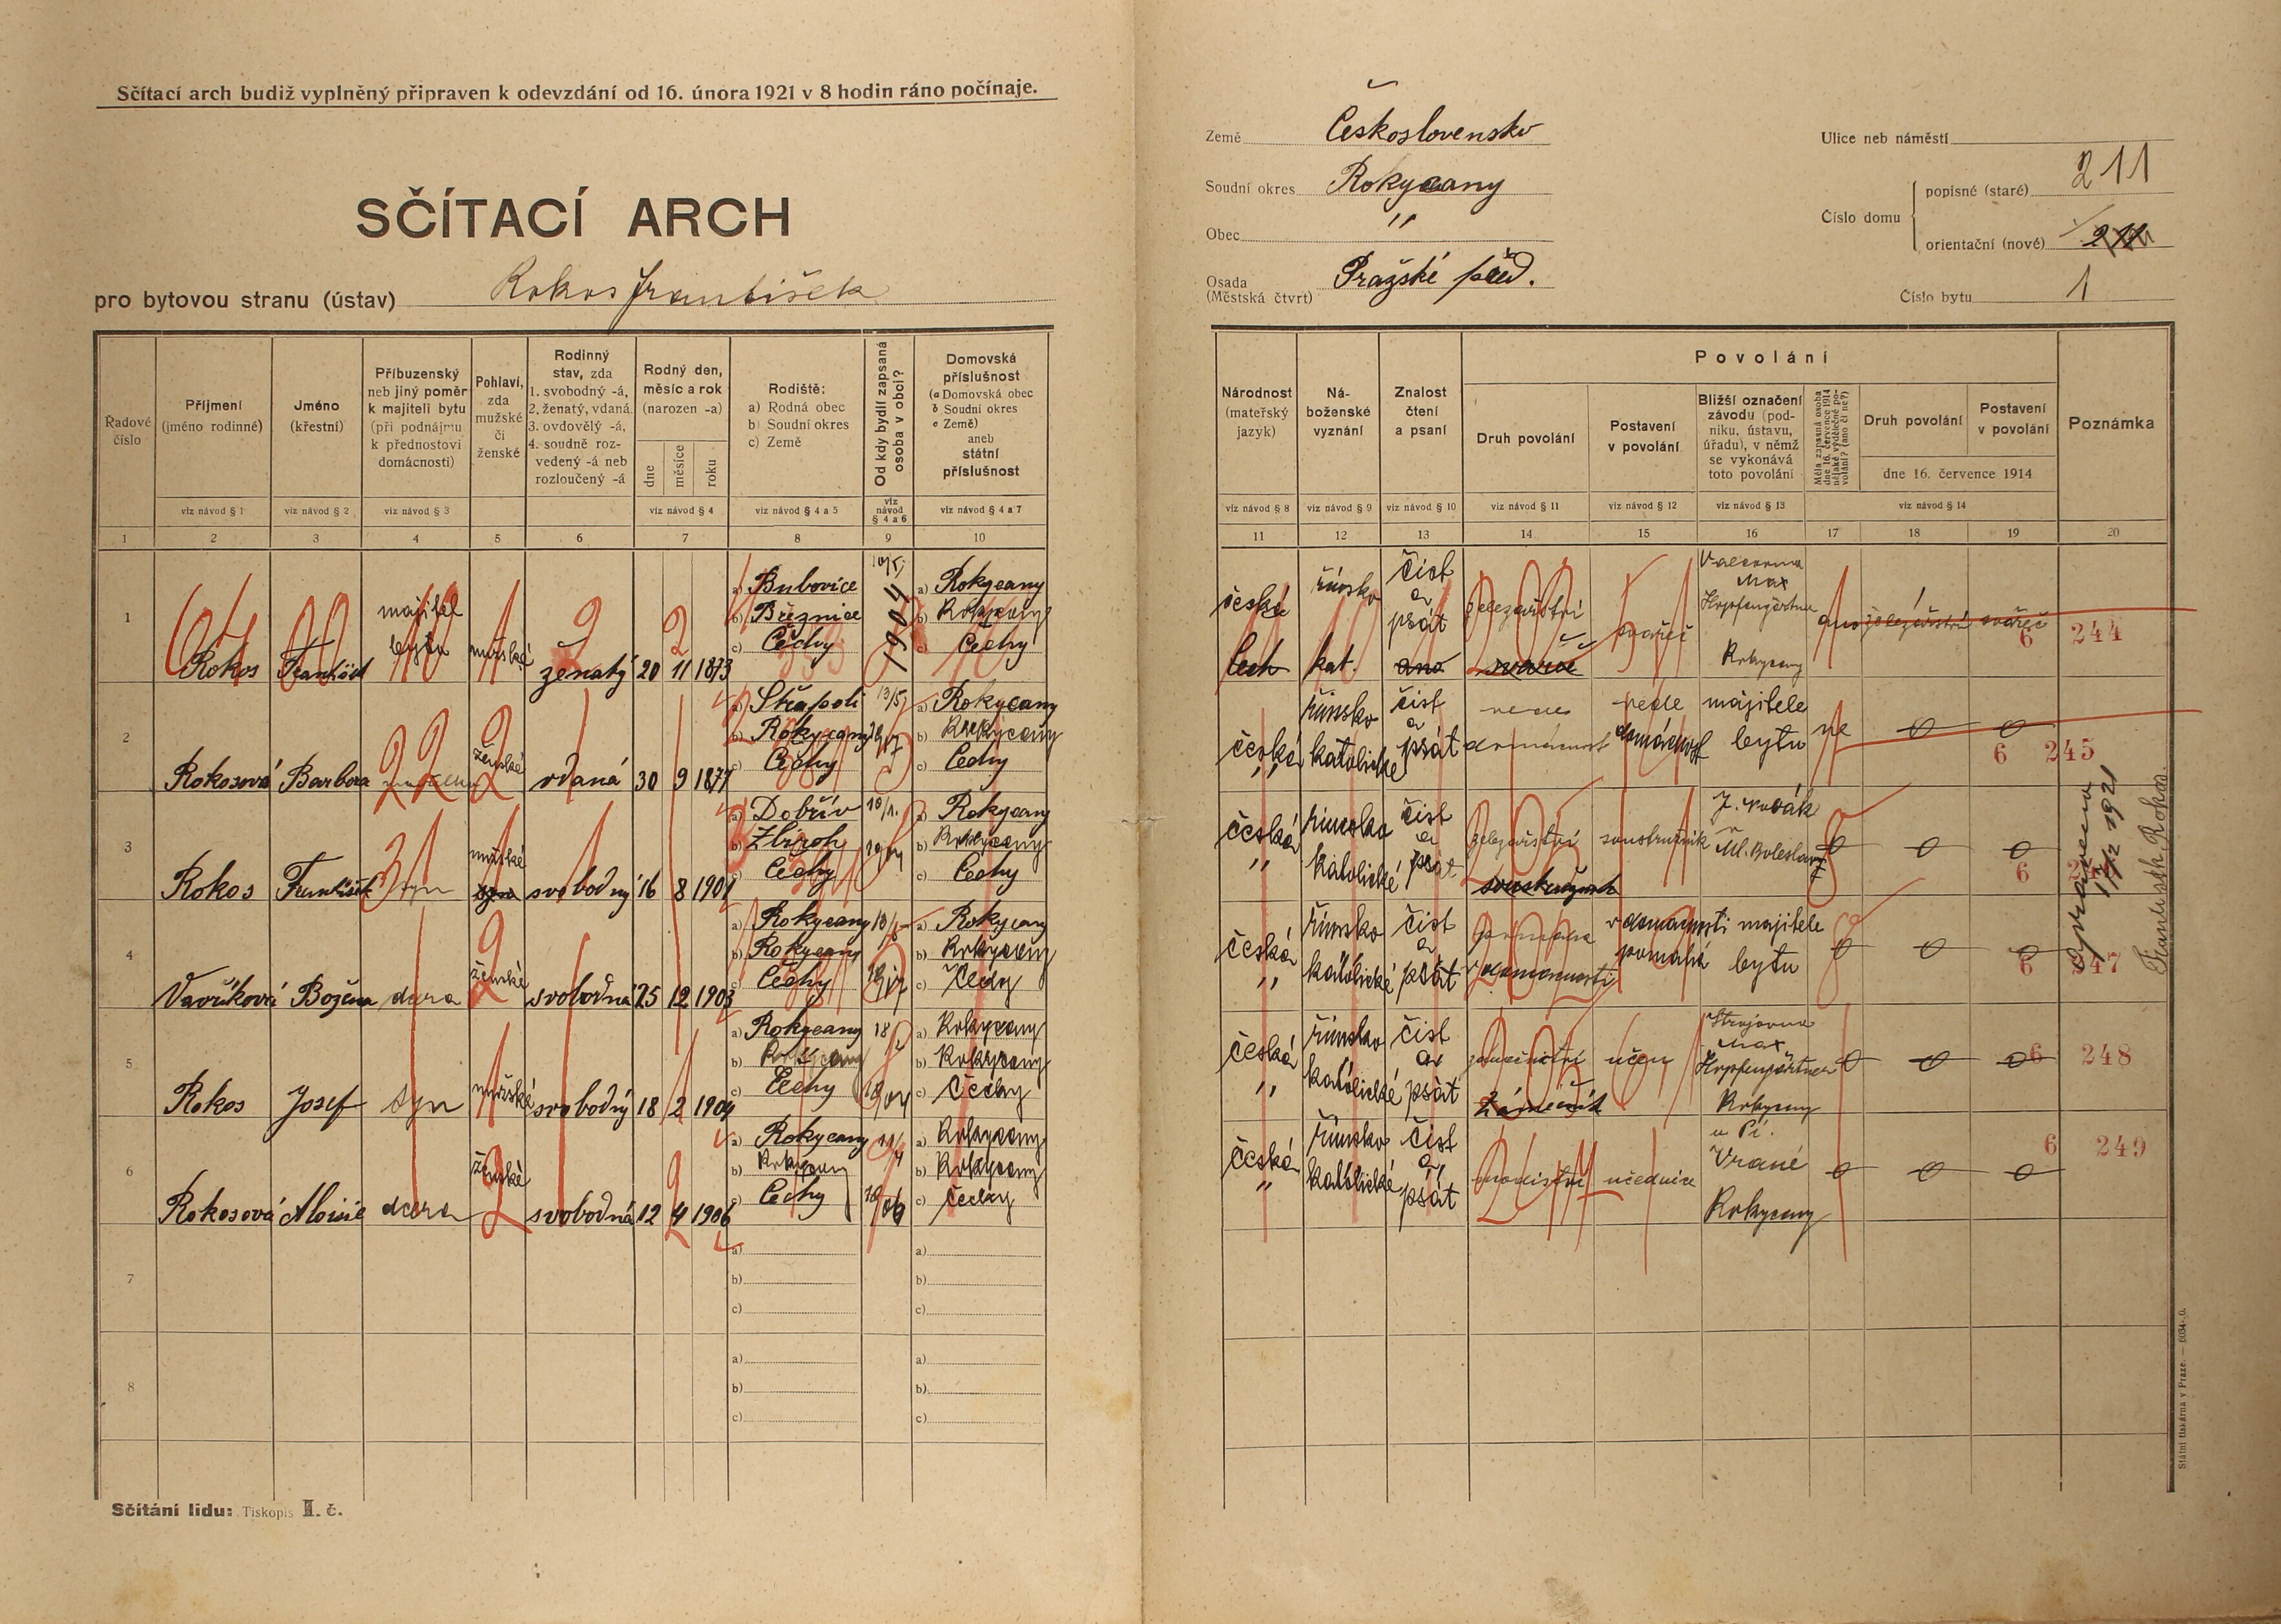 Sčítací arch budiž vyplněný připraven k odevzdání od 16. února 1921 v 8 hodin ráno počínaje.
SČÍTACÍ ARCH
pro bytovou stranu (ústav) Rokos František
Země Československo
Soudní okres Rokycany
Obec "
Osada (Městská čtvrť) Pražské před.
Ulice neb náměstí
Číslo domu
popisné (staré) 211
orientační (nové) 211
Číslo bytu 1
Řadové číslo
Příjmení (jméno rodinné)
Jméno (křestní)
Příbuzenský neb jiný poměr k majiteli bytu (při podnájmu k přednostovi domácnosti)
Pohlaví, zda mužské či ženské
Rodinný stav, zda 1. svobodný -á, 2. ženatý, vdaná, 3. ovdovělý -á, 4. soudně rozvedený -á neb rozloučený -á
Rodný den, měsíc a rok (narozen -a)
dne měsíce roku
Rodiště: a) Rodná obec b) Soudní okres c) Země
Od kdy bydlí zapsaná osoba v obci?
Domovská příslušnost (a Domovská obec b Soudní okres c Země) aneb státní příslušnost
viz návod § 1 viz návod § 2 viz návod § 3 viz návod § 4 viz návod § 4 a 5 viz návod § 4 a 6 viz návod § 4 a 7
1 2 3 4 5 6 7 8 9 10
Národnost (mateřský jazyk)
Náboženské vyznání
Znalost čtení a psaní
Povolání
Druh povolání
Postavení v povolání
Bližší označení závodu (podniku, ústavu, úřadu), v němž se vykonává toto povolání
Měla zapsaná osoba dne 16. července 1914 nějaké výdělečné povolání? (ano či ne?)
Druh povolání
Postavení v povolání
dne 16. července 1914
Poznámka
viz návod § 8 viz návod § 9 viz návod § 10 viz návod § 11 viz návod § 12 viz návod § 13 viz návod § 14
11 12 13 14 15 16 17 18 19 20
1 Rokos František majitel bytu mužské ženatý 20 11 1873 a) Bubovice b) Březnice c) Čechy 1904 a) Rokycany b) Rokycany c) Čechy
česká Čech římsko kat. číst a psát ano železářství svářeč svářeč Max Hopfengärtner Rokycany ano železářství svářeč 6 244
2 Rokosová Barbora ženské vdaná 30 9 1877 a) b) Rokycany c) Čechy a) Rokycany b) Rokycany c) Čechy
česká " římsko katolické číst a psát vede domácnost vede domácnost majitele bytu ne 0 0 6 245
3 Rokos František syn mužské syn svobodný 16 8 1901 a) Dobřív b) Zbiroh c) Čechy a) Rokycany b) Rokycany c) Čechy
česká " římsko katolické číst a psát železářství soustružník J. Novák Ml. Boleslav 0 0 0 6
4 Božena dcera ženské svobodná 25 12 1903 a) Rokycany b) Rokycany c) Čechy a) Rokycany b) Rokycany c) Čechy
česká " římsko katolické číst a psát pomáhá v domácnosti v domácnosti pomáhá majitele bytu 0 0 0 6 247
5 Rokos Josef syn mužské svobodný 18 2 1904 a) Rokycany b) Rokycany c) Čechy 18/2 1904 a) Rokycany b) Rokycany c) Čechy
česká " římsko katolické číst a psát zámečnictví zámečník učeň Strojovna Max Hopfengärtner Rokycany 0 0 0 6 248
6 Rokosová Aloisie dcera ženské svobodná 12 4 1906 a) Rokycany b) Rokycany c) Čechy 1906 a) Rokycany b) Rokycany c) Čechy
česká " římsko katolické číst a psát učednice u Pí. Vrané Rokycany 0 0 0 6 249
7 a) b) c) a) b) c)
8 a) b) c) a) b) c)
František Rokos.
Sčítání lidu: Tiskopis II. č.
Státní tiskárna v Praze. — 6034-20.